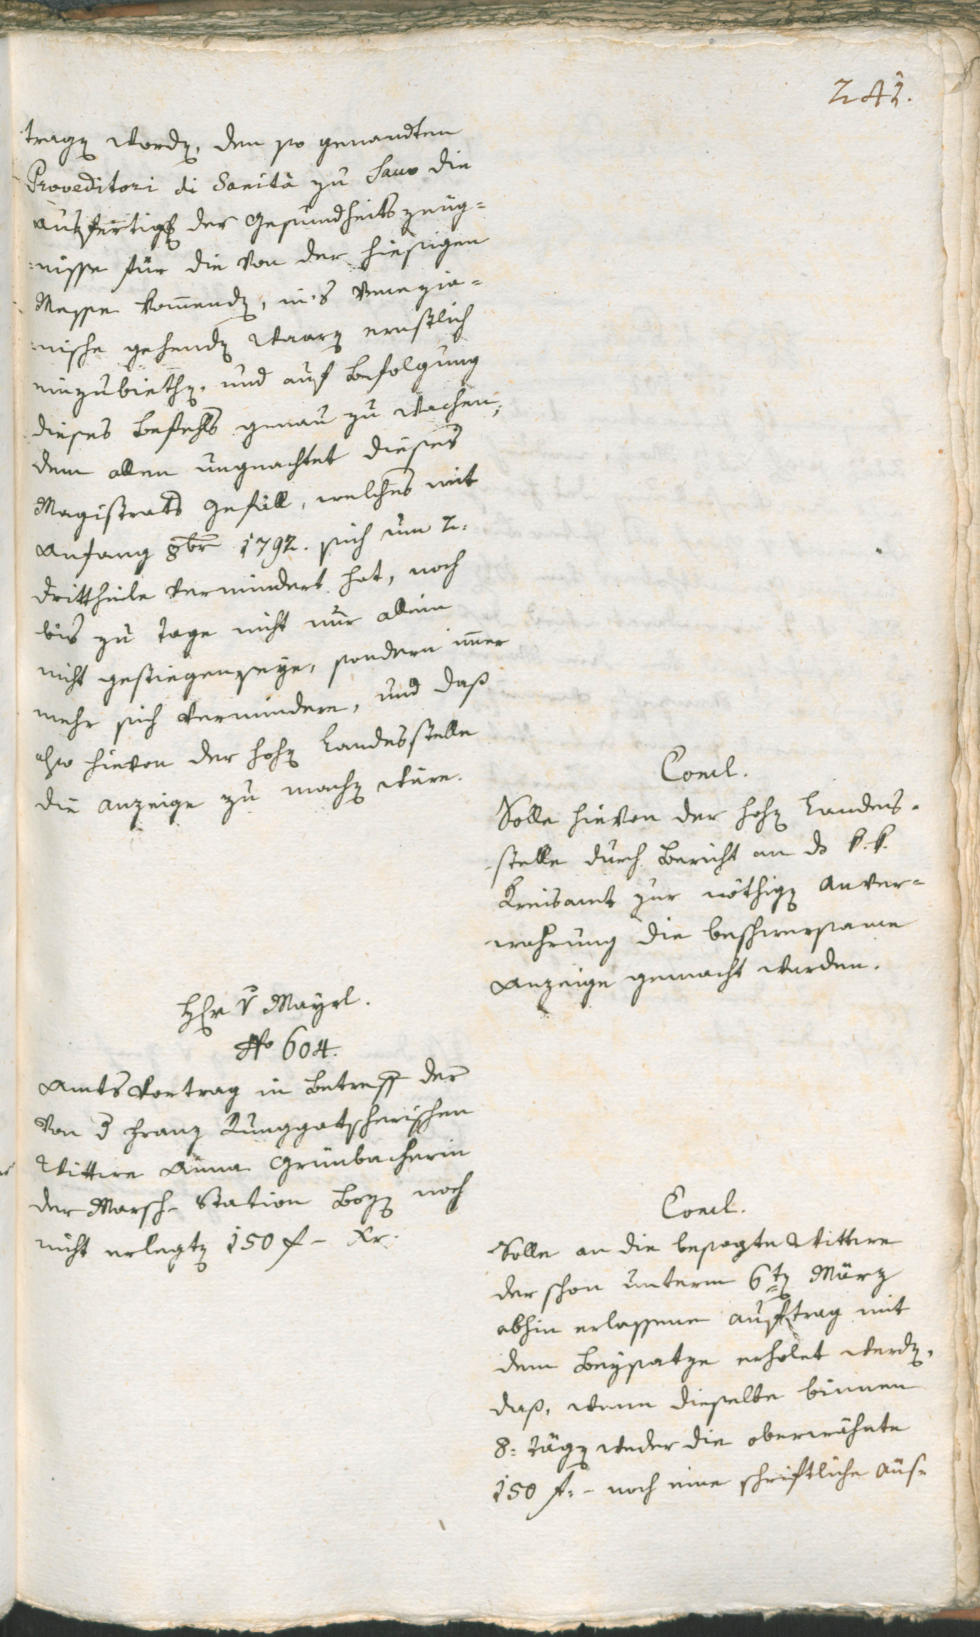 242.
tragen worden, den so genandten
Proveditori di Sanità zu Sauo die
Ausfertigung der Gesundheitszeug-
nisse für die von der hiesigen
Messe kommenden, in's Venezia-
nische gehenden Waaren ernstlich
einzubiethen, und auf Befolgung
dieses Befehls genau zu wachen;
dem allen ungeachtet dieses
Magistrats Gefäll, welches mit
Anfang 8br 1792. sich um 2.
Drittheile vermindert hat, noch
bis zu Tage nicht nur allein
nicht gestiegen seye, sondern immer
mehr sich vermindere, und daß
also hievon der hohen Landesstelle
die Anzeige zu machen wäre.
Concl.
Solle hievon der hohen Landes-
stelle durch Bericht an das k. k.
Kreisamt zur nöthigen Anver-
wahrung die beschwersame
Anzeige gemacht werden.
Hr v Mayrl.
No 604.
Amtsvortrag in Betreff der
von d Franz Runggatscherischen
Wittwe Anna Grünbacherin
der Marsch-Station Bozen noch
nicht erlegten 150 f - Xr.
Concl.
Solle an die besagte Wittwe
der schon unterm 6ten März
abhin erlassene Auftrag mit
dem Beysatze erholet werden,
daß, wenn dieselbe binnen
8: Tägen weder die oberwähnte
150 f: - noch eine schriftliche Aus-